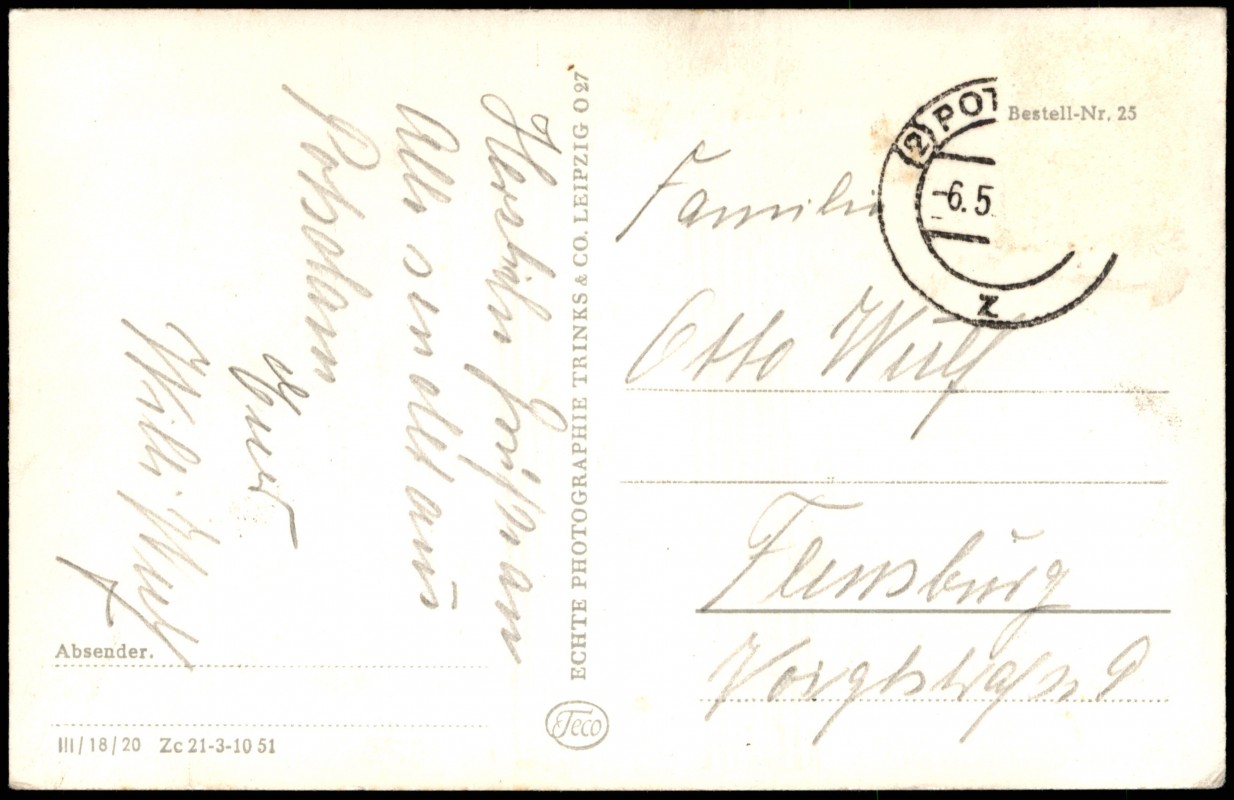 Herzliche Grüße an
Alle sendet aus
Potsdam
Ernst
Willi Wulf
Absender.
III/18/20 Zc 21-3-10 51
ECHTE PHOTOGRAPHIE TRINKS & CO. LEIPZIG O 27
Teco
(2) POT
-6.5
z
Bestell-Nr. 25
Familie
Otto Wulf
Flensburg
Voigtstraße 9